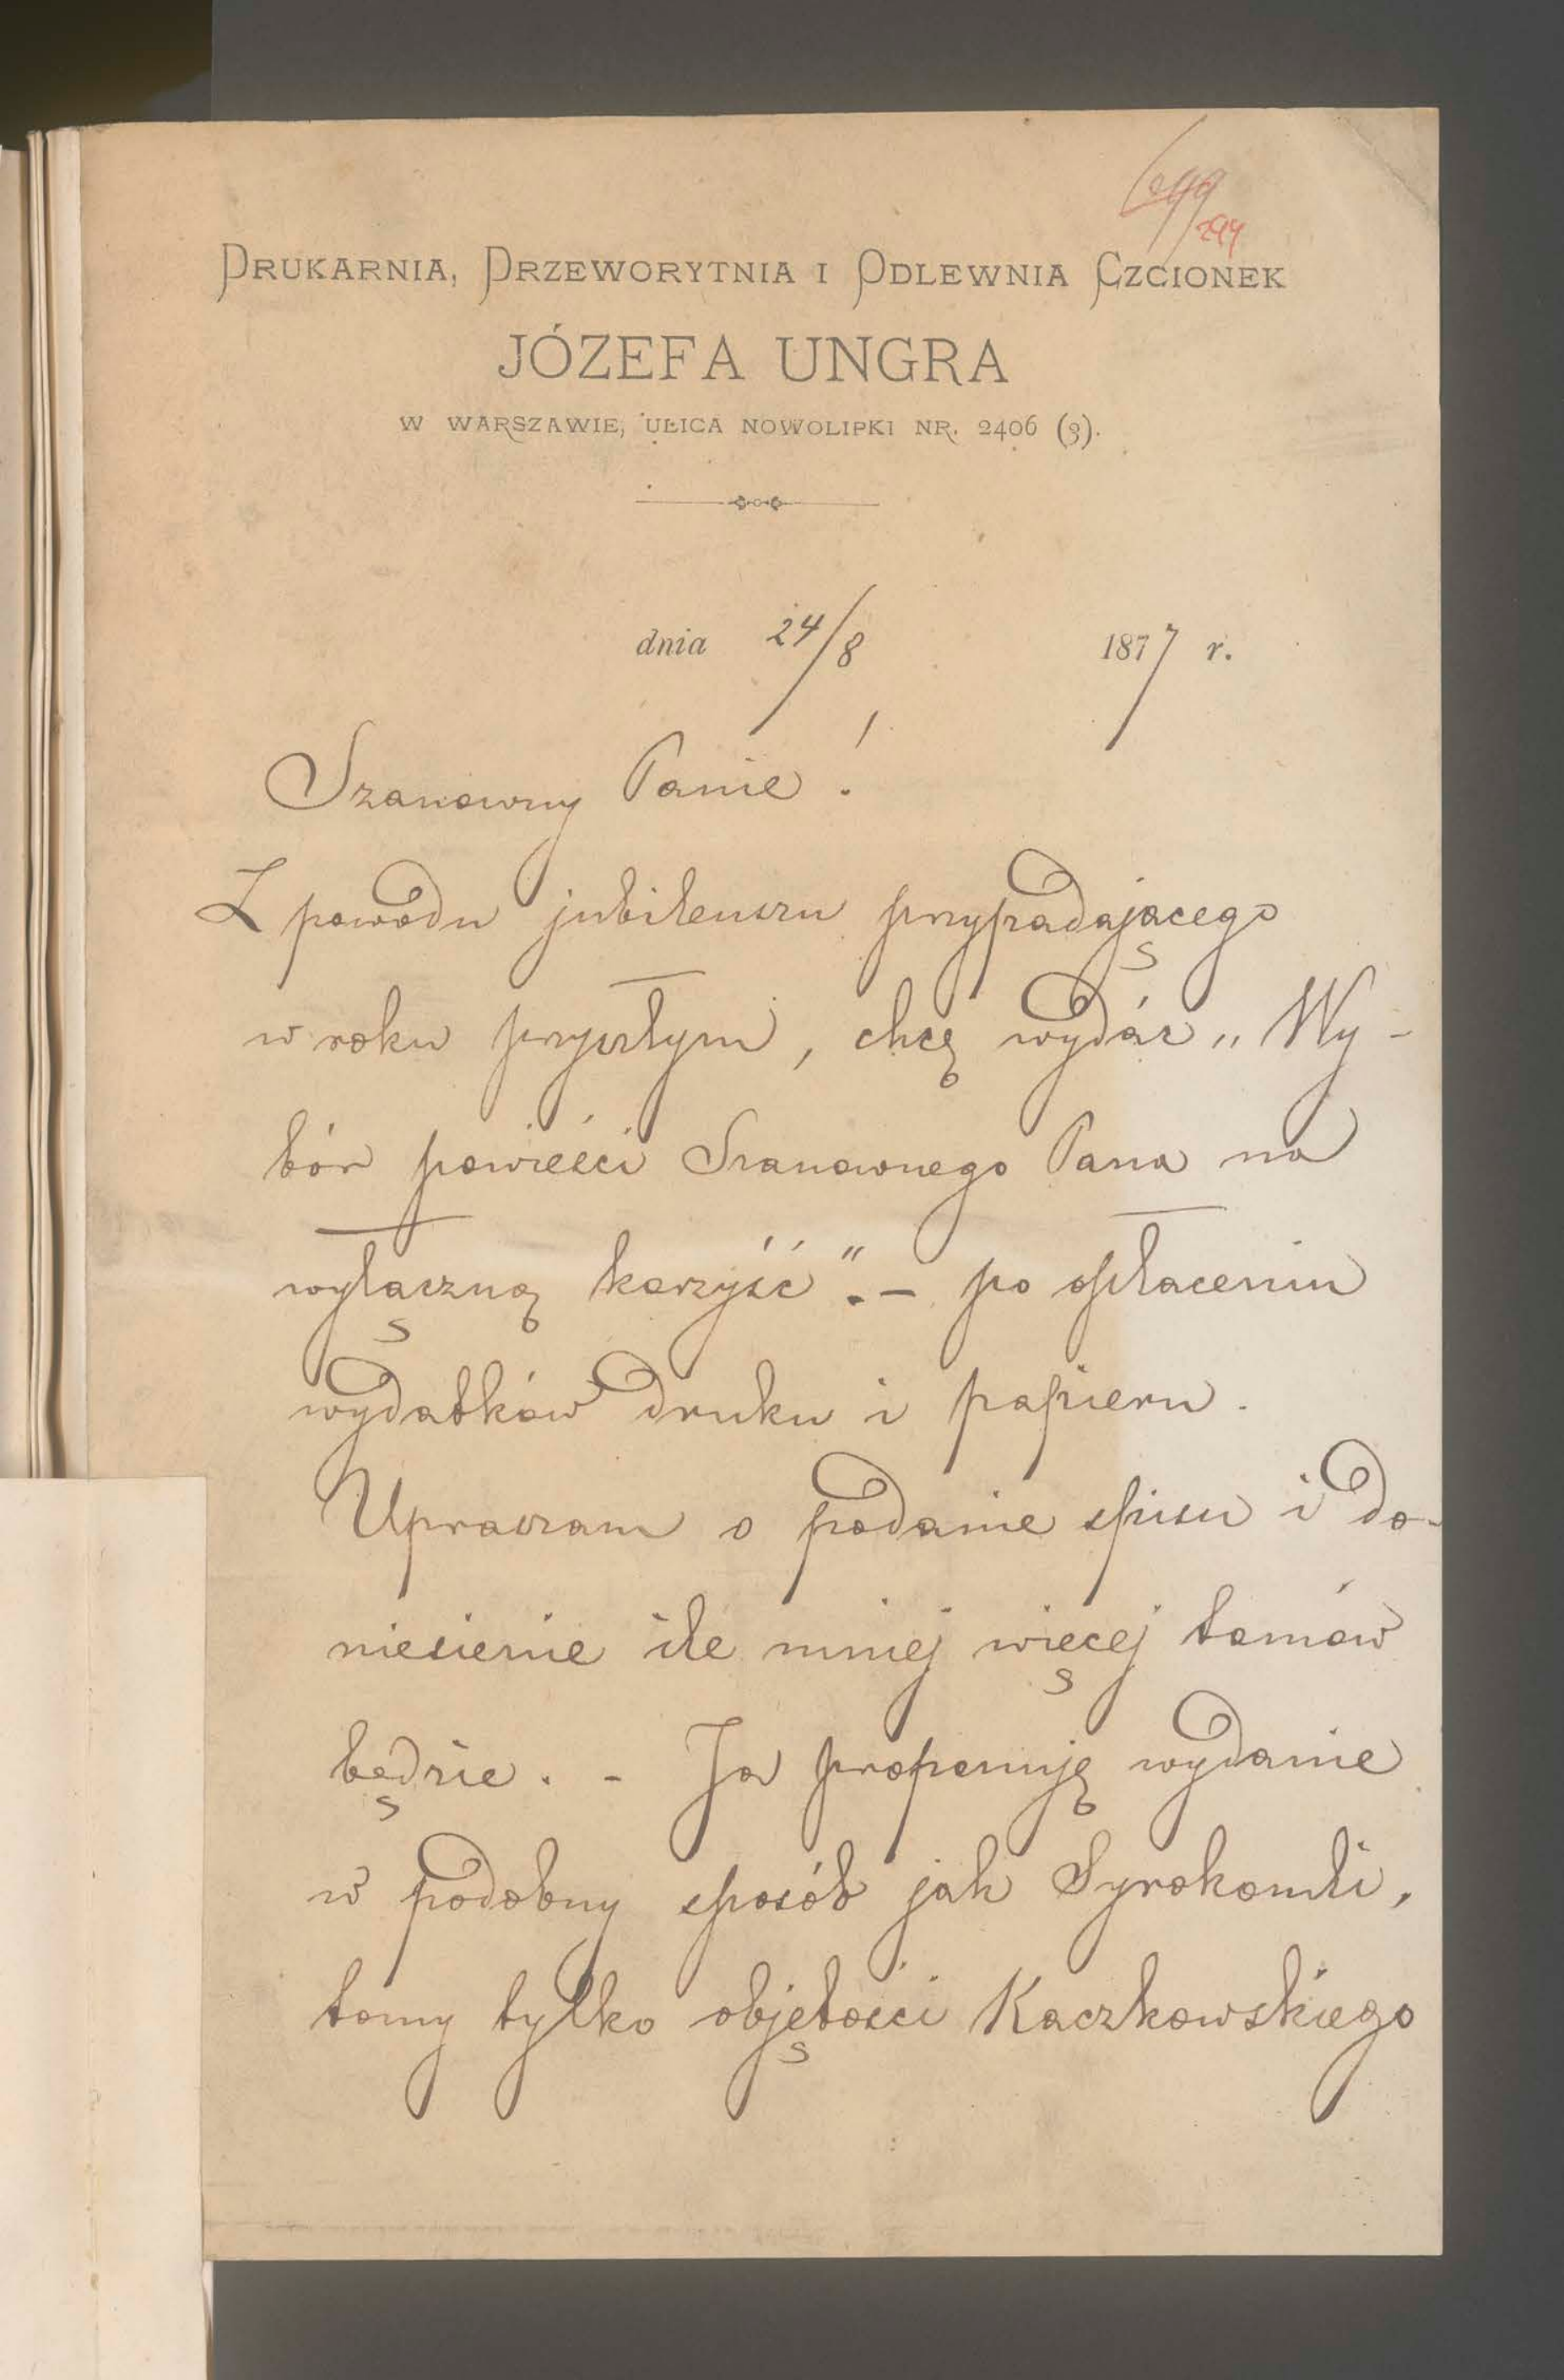 294
DRUKARNIA, DRZEWORYTNIA I ODLEWNIA CZCIONEK
JÓZEFA UNGRA
W WARSZAWIE, ULICA NOWOLIPKI NR. 2406 (3).
dnia 24/8 1877 r.
Szanowny Panie!
Z powodu jubileuszu przypadającego
w roku przyszłym, chcę wydać „Wy-
bór powieści Szanownego Pana na
wyłączną korzyść". – po opłaceniu
wydatków druku i papieru.
Upraszam o podanie spisu i do-
niesienie ile mniej więcej tomów
będzie. - Ja proponuję wydanie
w podobny sposób jak Syrokomli,
tomy tylko objętości Kaczkowskiego